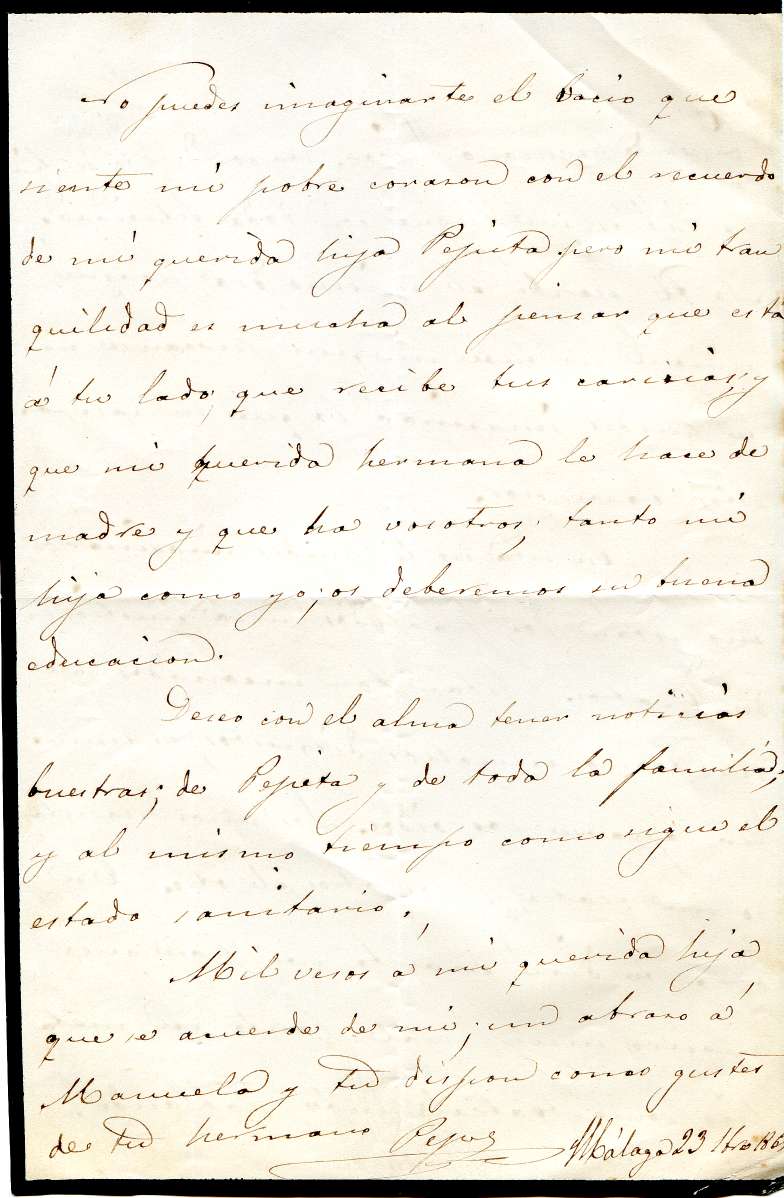 No puedes imaginarte el bacio que
siente mi pobre corason con el recuerdo
de mi querida hija Pepita pero mi tran
quilidad es mucha al pensar que está
á tu lado; que recibe tus caricias; y
que mi querida hermana le hace de
madre y que ha vosotros; tanto mi
hija como yo; os deberemos su buena
educacion.
Deseo con el alma tener noticias
buestras; de Pepita y de toda la familia,
y al mismo tiempo como sigue el
estado sanitario.
Mil vesos á mi querida hija
que se acuerde de mi; un abraso á
Manuela y tu dispon como gustes
de tu hermano Pepe
Málaga 23